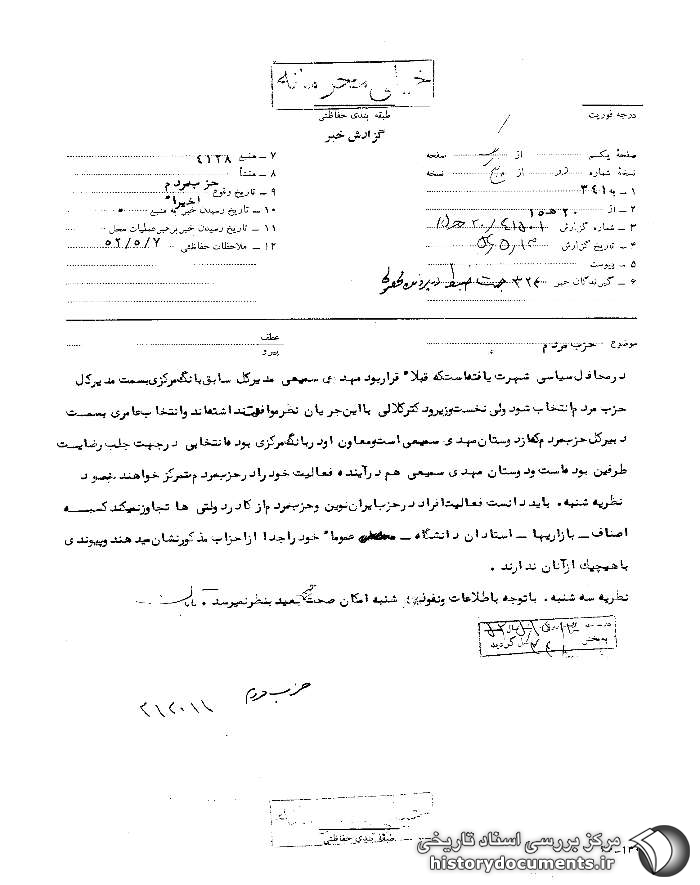 خیلی محرمانه
طبقه بندی حفاظتی
گزارش خبر
درجه فوریت
صفحهٔ یکم از صفحه
نسخهٔ شماره دو از نسخه
۱ - به ۳۴۱
۲ - از ۲۰ ه‍ ۱۵
۳ - شماره گزارش
۴ - تاریخ گزارش
۵ - پیوست
۶ - گیرندگان خبر ۳۲۴ جهت ضبط در پرونده
۷ - منبع ۴۱۲۸
۸ - منشأ
۹ - تاریخ وقوع اخیراً
۱۰ - تاریخ رسیدن خبر به منبع
۱۱ - تاریخ رسیدن خبر برهبر عملیات محل
۱۲ - ملاحظات حفاظتی ۵۲/۵/۷
حزب مردم
موضوع حزب مردم
عطف
پیرو
در محافل سیاسی شهرت یافته است که قبلاً قرار بود مهدی سمیعی مدیر کل سابق بانک مرکزی بسمت مدیر کل
حزب مردم انتخاب شود ولی نخست وزیر و دکتر کلالی با این جریان نظر موافق نداشته اند و انتخاب عامری بسمت
دبیر کل حزب مردم که از دوستان مهدی سمیعی است و معاون او در بانک مرکزی بوده انتخابی در جهت جلب رضایت
طرفین بوده است و دوستان مهدی سمیعی هم در آینده فعالیت خود را در حزب مردم متمرکز خواهند نمود
نظریه شنبه. باید دانست فعالیت افراد در حزب ایران نوین و حزب مردم از کادر دولتی ها تجاوز نمیکند کسبه
اصناف - بازاریها - استادان دانشگاه - عموماً خود را جدا از احزاب مذکور نشان میدهند و پیوندی
با هیچیک از آنان ندارند.
نظریه سه شنبه. با توجه باطلاعات و نفوذ شنبه امکان صحت خبر بعید بنظر نمیرسد.
به بخش
گردید
حزب مردم
۲۱۲۰۱۱
طبقه بندی حفاظتی
مرکز بررسی اسناد تاریخی
historydocuments.ir